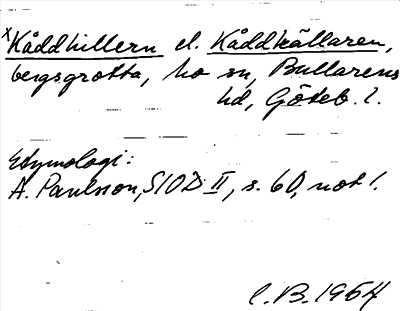 x Kåddhillern el. Kåddkällaren,
bergsgrotta, ho sn, Bullarens
hd, Göteb. l.
Etymologi:
A. Paulsson, SIOD II, s. 60, not 1.
C.B. 1964